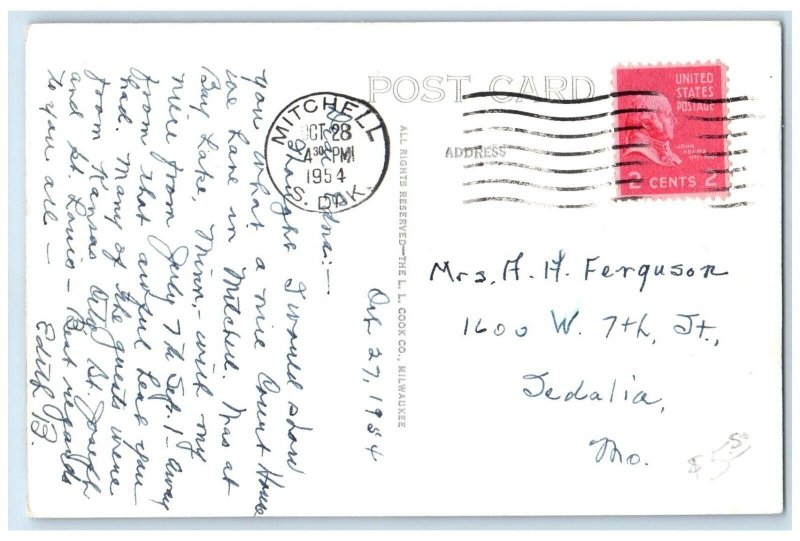 POST CARD
ADDRESS
MITCHELL
OCT 28
4 30 PM
1954
S. DAK.
UNITED
STATES
POSTAGE
JOHN
ADAMS
2 CENTS 2
ALL RIGHTS RESERVED—THE L. L. COOK CO., MILWAUKEE
Oct 27, 1954
Edna:—
Thought I would show
you what a nice Court House
we have in Mitchell. Was at
Bay Lake, Minn,- with my
niece from July 7th Sept. 1- away
from that awful heat you
had. Many of the guests were
from Kansas City, St. Joseph
and St Louis - Best regards
to you all — Edith B.
Mrs. A. H. Ferguson
1600 W. 7th, St.,
Sedalia,
Mo.
$5 50